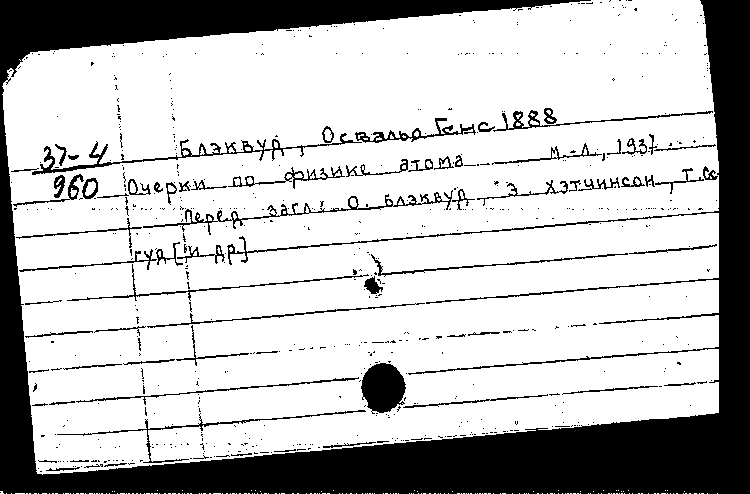 37-4
960
Блэквуд, Освальд Генс 1888
Очерки по физике атома м.-Л., 1937
Перед загл: О. Блэквуд, Э. Хэтчинсон, Т. Ос
гуд [и др]